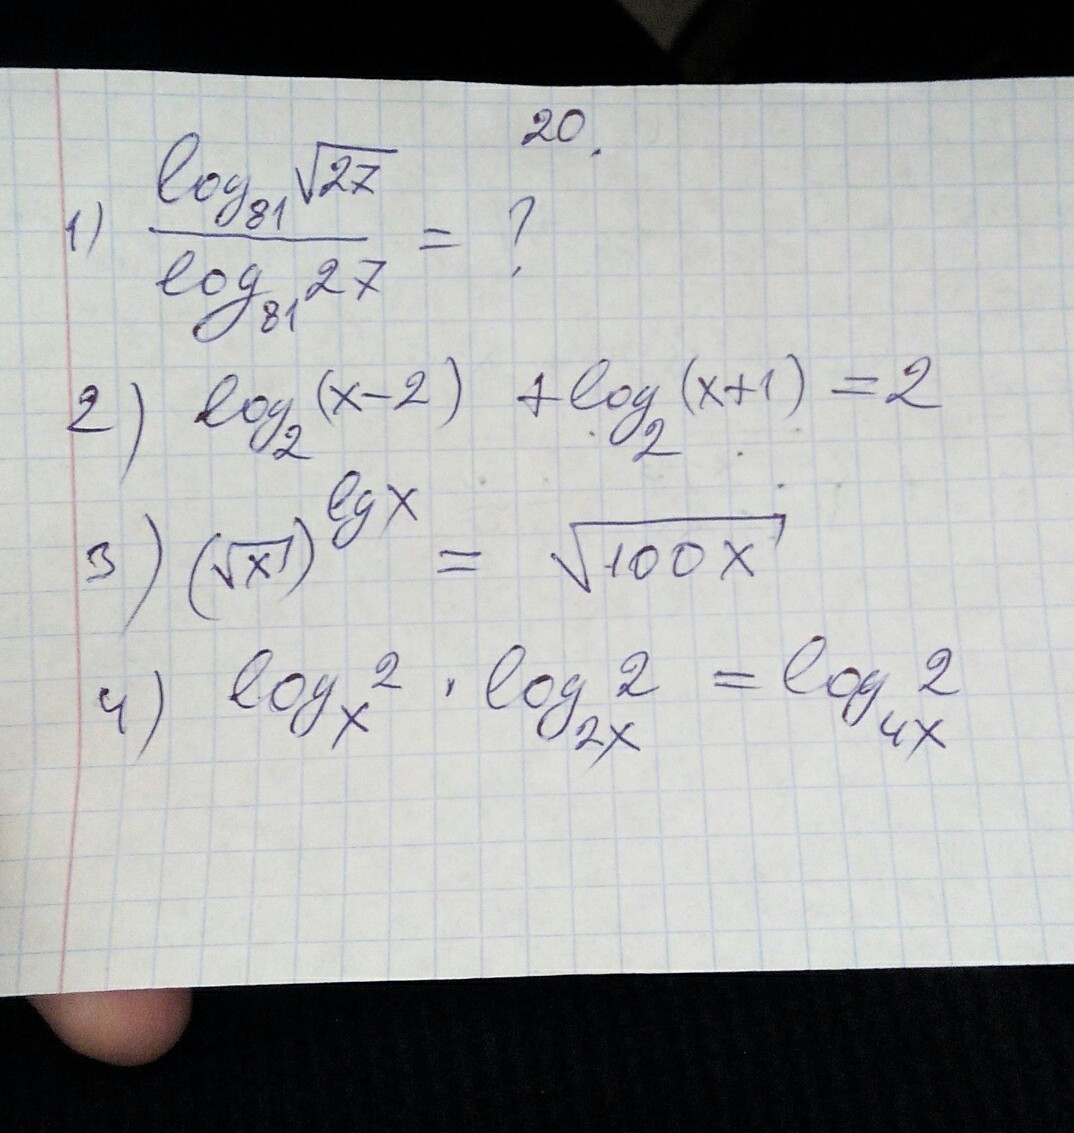 20.
1) log₈₁√27 / log₈₁27 = ?
2) log₂(x-2) + log₂(x+1) = 2
3) (√x)^lgx = √100x
4) logₓ2 · log₂ₓ2 = log₄ₓ2